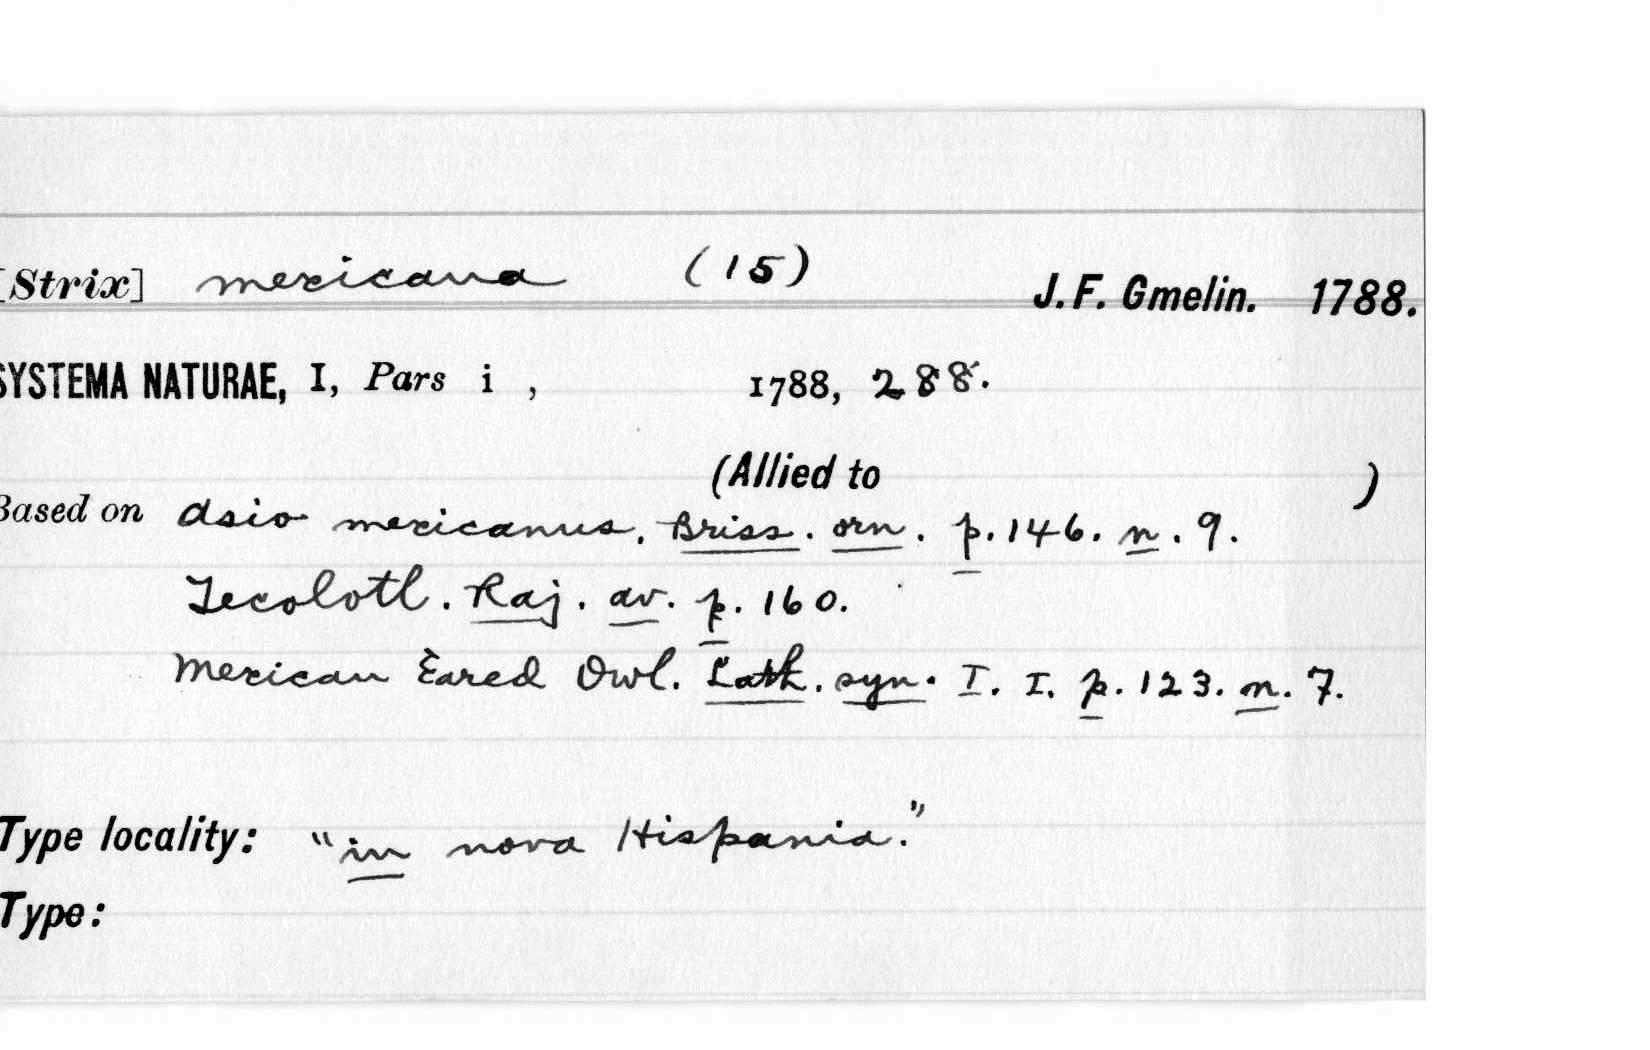 [Strix] mexicana (15) J. F. Gmelin. 1788.
SYSTEMA NATURAE, I, Pars i , 1788, 288.
(Allied to )
Based on Asio mexicanus. Briss. orn. p. 146. n. 9.
Tecolotl. Raj. av. p. 160.
Mexican Eared Owl. Lath. syn. I. I. p. 123. n. 7.
Type locality: "in nova Hispania."
Type: